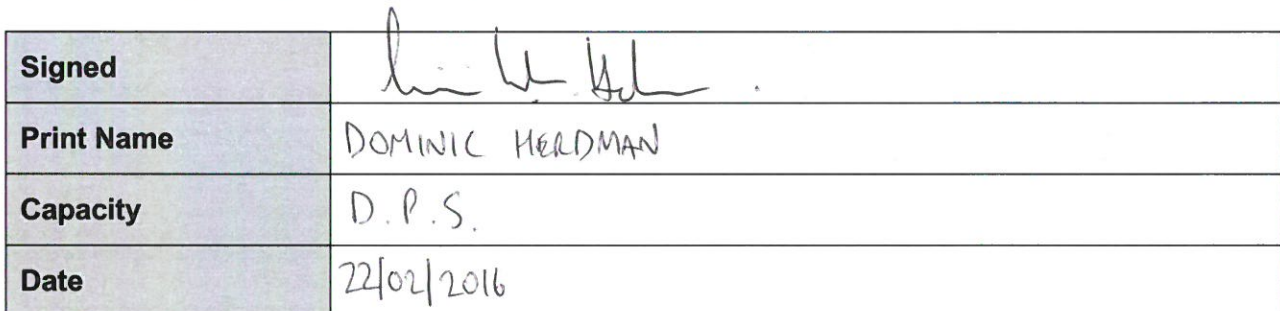 Signed
Print Name DOMINIC HERDMAN
Capacity D.P.S.
Date 22/02/2016